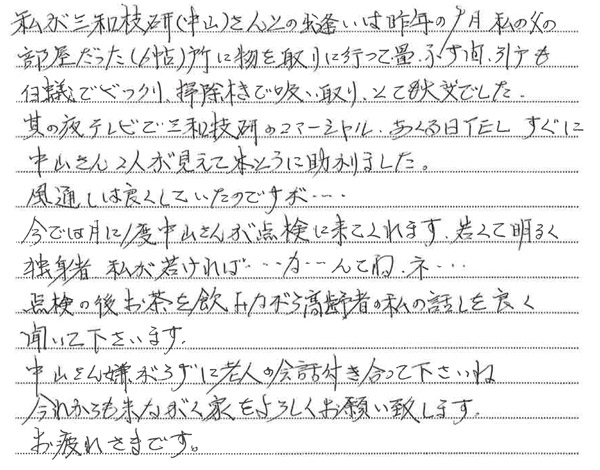 私が三和技研(中山)さんとの出逢いは昨年の9月私の父の
部屋だった(6帖)所に物を取りに行って畳、ふす間、引戸も
白蟻でビックリ、掃除機で吸い取り、とても大変でした。
其の夜テレビで三和技研のコマーシャル、あくる日TELすぐに
中山さん2人が見えて本とうに助かりました。
風通しは良くしていたのですが・・・
今では月に1度中山さんが点検に来てくれます。若くて明るく
独身者 私が若ければ・・・な・・んてね、ネ・・・
点検の後お茶を飲みながら高齢者の私の話しを良く
聞いて下さいます。
中山さん嫌がらずに老人の会話付き合って下さいね
今れからも末ながく家をよろしくお願い致します。
お疲れさまです。